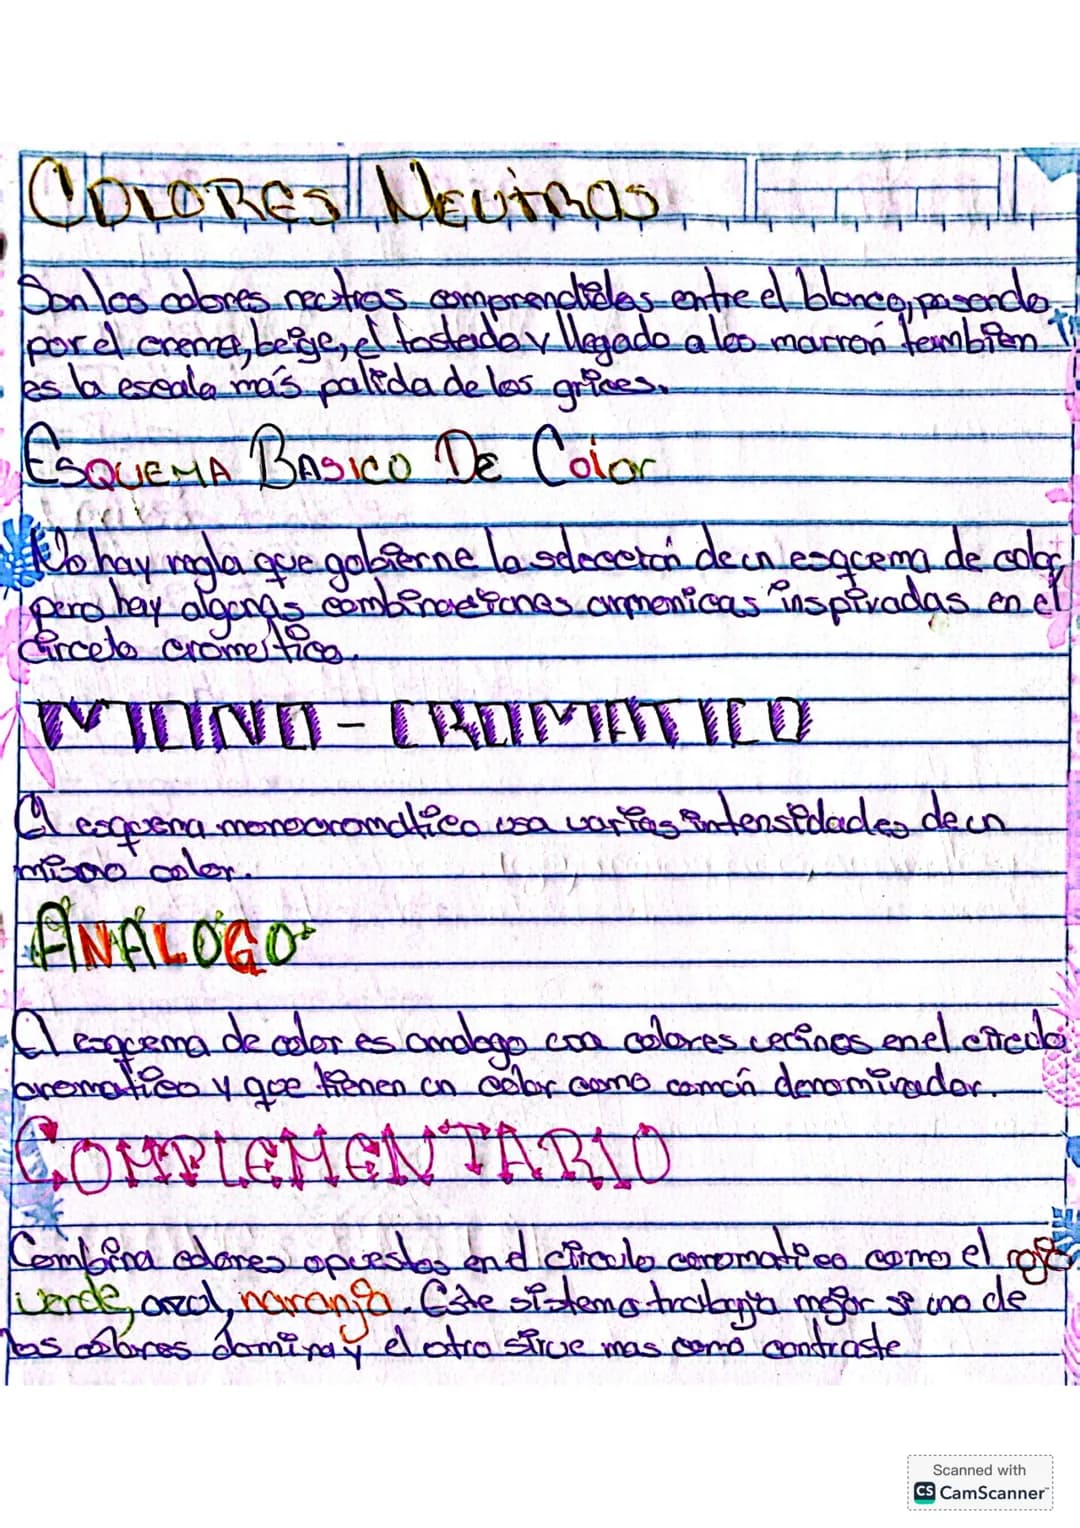 COLORES NEUTROS
Son los colores neutros comprendidos entre el blanco, pasando
por el crema, beige, el tostado y llegado a los marron tambien
es la escala más palida de los grices.
ESQUEMA BASICO DE Color
No hay regla que gobierne la selección de un esquema de color
pero hay algunas combinaciones armonicas inspiradas en el
circulo cromatico.
MONO-CROMATICO
El esquema monocromatico usa varias intensidades de un
mismo color.
ANALOGO
El esquema de color es analogo usa colores vecinos en el circulo
cromatico y que tienen un color como común denominador.
COMPLEMENTARIO
Combina colores opuestos en el circulo coromatico como el rojo
verde, azul, naranja. Este sistema trabaja mejor si uno de
los colores domina y el otro sirve mas como contraste
Scanned with
CS CamScanner